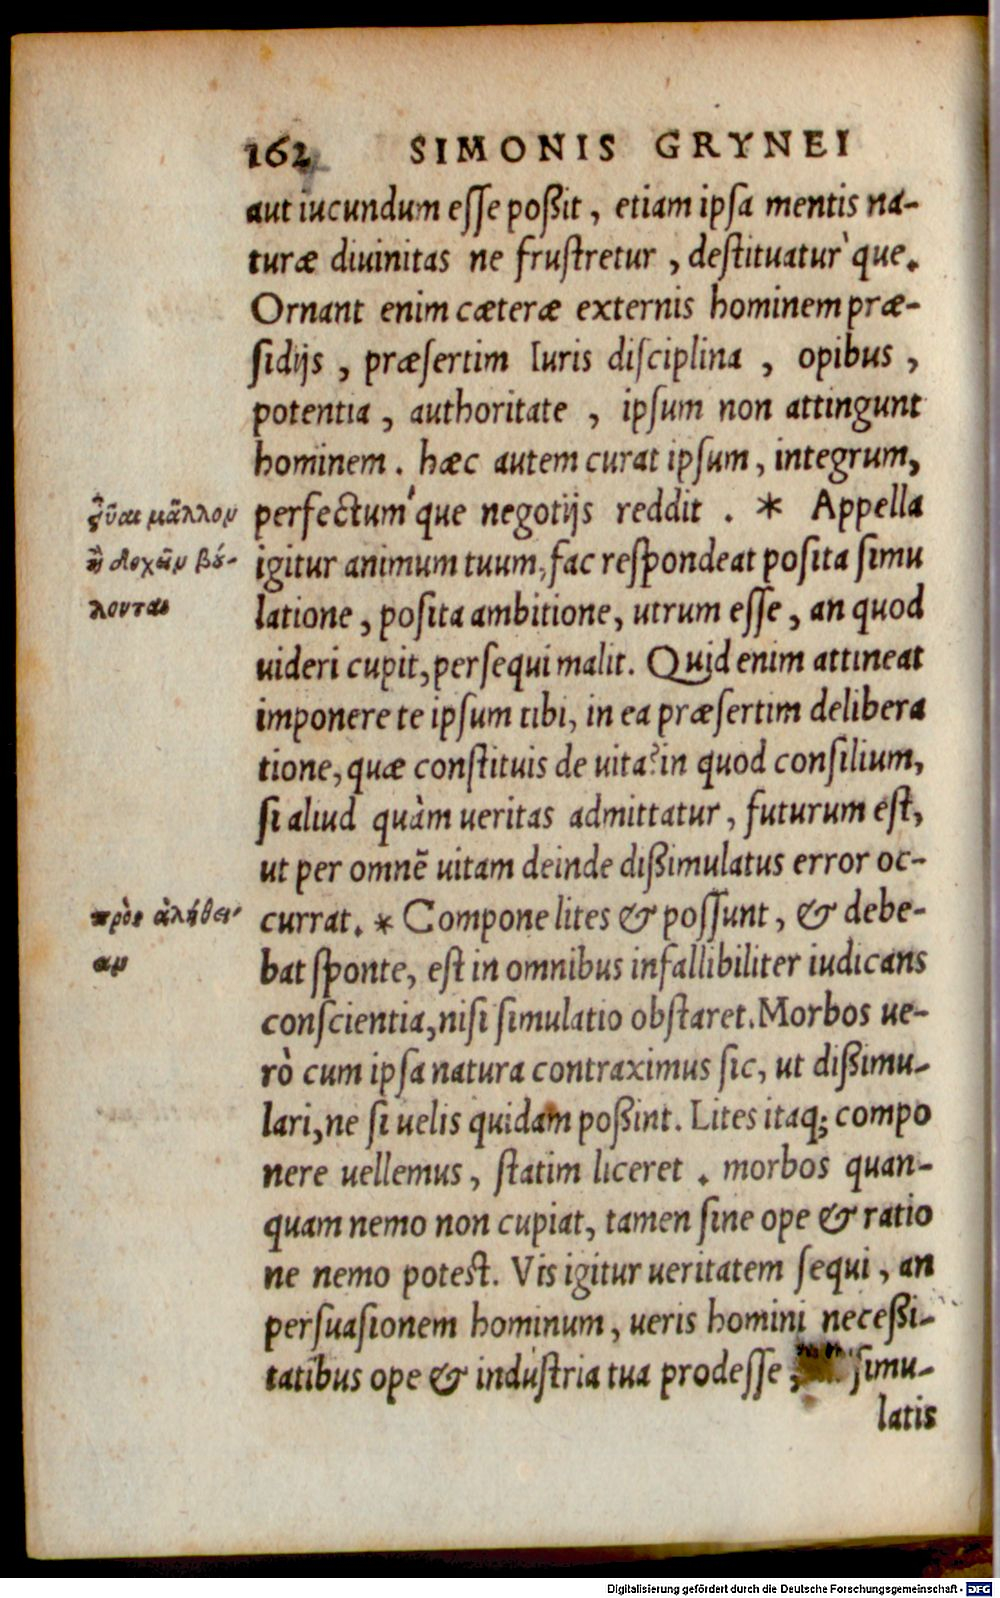 162 SIMONIS GRYNEI
aut iucundum eſſe poßit, etiam ipſa mentis na-
turæ diuinitas ne fruſtretur, deſtituatur que.
Ornant enim cæteræ externis hominem præ-
ſidijs, præſertim Iuris diſciplina, opibus,
potentia, authoritate, ipſum non attingunt
hominem. hæc autem curat ipſum, integrum,
perfectum que negotijs reddit. * Appella
igitur animum tuum, fac reſpondeat poſita ſimu
latione, poſita ambitione, utrum eſſe, an quod
uideri cupit, perſequi malit. Quid enim attineat
imponere te ipſum tibi, in ea præſertim delibera
tione, quæ conſtituis de uita? in quod conſilium,
ſi aliud quàm ueritas admittatur, futurum eſt,
ut per omnē uitam deinde dißimulatus error oc-
currat. * Compone lites & poſſunt, & debe-
bat ſponte, eſt in omnibus infallibiliter iudicans
conſcientia, niſi ſimulatio obſtaret. Morbos ue-
rò cum ipſa natura contraximus ſic, ut dißimu-
lari, ne ſi uelis quidam poßint. Lites itaq; compo
nere uellemus, ſtatim liceret. morbos quan-
quam nemo non cupiat, tamen ſine ope & ratio
ne nemo poteſt. Vis igitur ueritatem ſequi, an
perſuaſionem hominum, ueris homini neceßi-
tatibus ope & induſtria tua prodeſſe, ſimu-
latis
μᾶλλον
ἢ δοχῆν βό-
λονται
πρὸς ἀλήθει-
αν
Digitalisierung gefördert durch die Deutsche Forschungsgemeinschaft - DFG